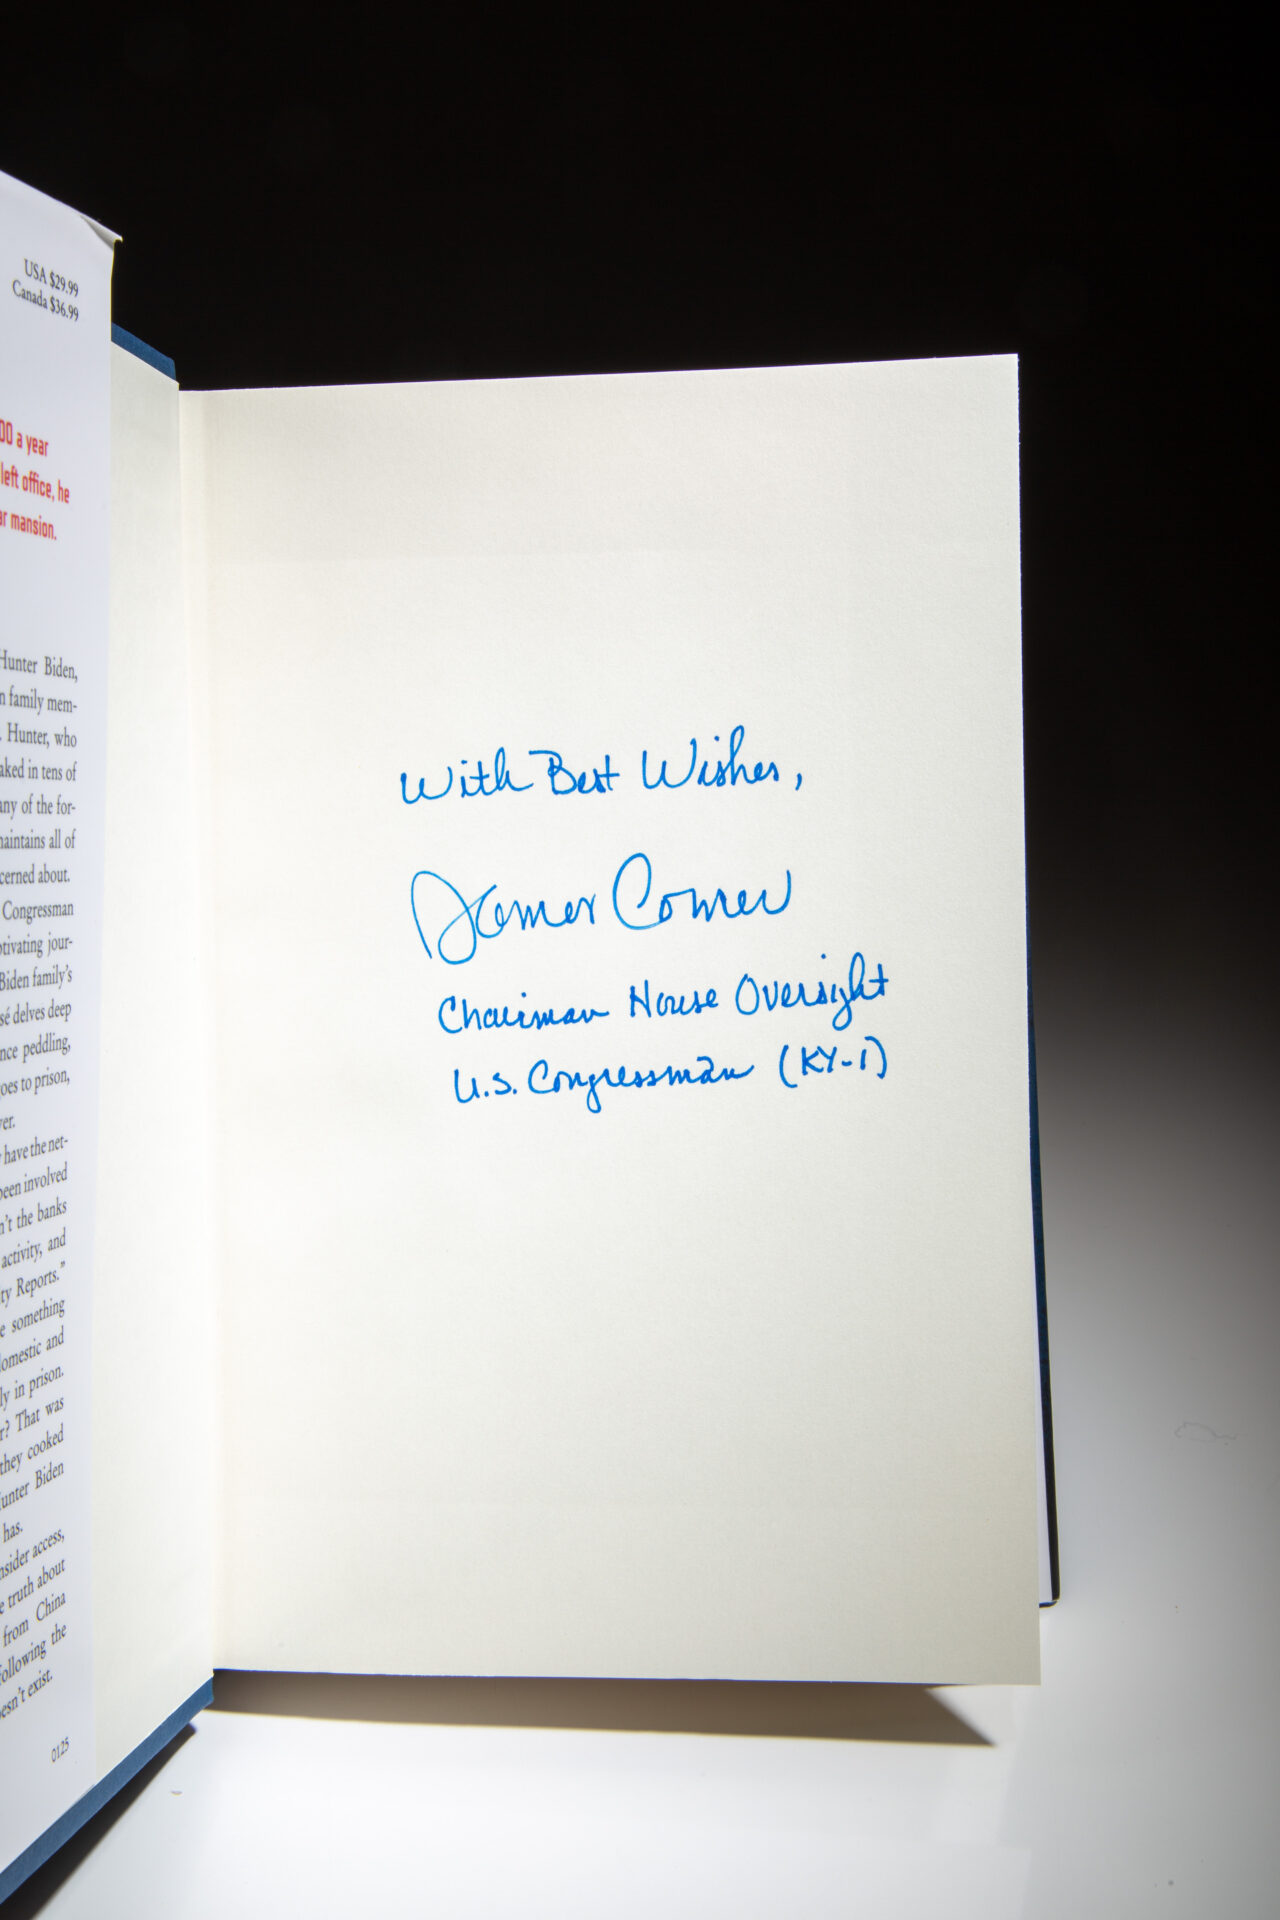 USA $29.99
Canada $36.99
00 a year
left office, he
mansion.
Hunter Biden,
family mem-
Hunter, who
aked in tens of
any of the for-
maintains all of
cerned about.
Congressman
tivating jour-
Biden family's
sé delves deep
nce peddling,
goes to prison,
ver.
have the net-
been involved
n't the banks
activity, and
ty Reports."
e something
domestic and
ly in prison.
r? That was
they cooked
Hunter Biden
has.
nsider access,
e truth about
from China
following the
esn't exist.
0125
With Best Wishes,
James Comer
Chairman House Oversight
U.S. Congressman (KY-1)